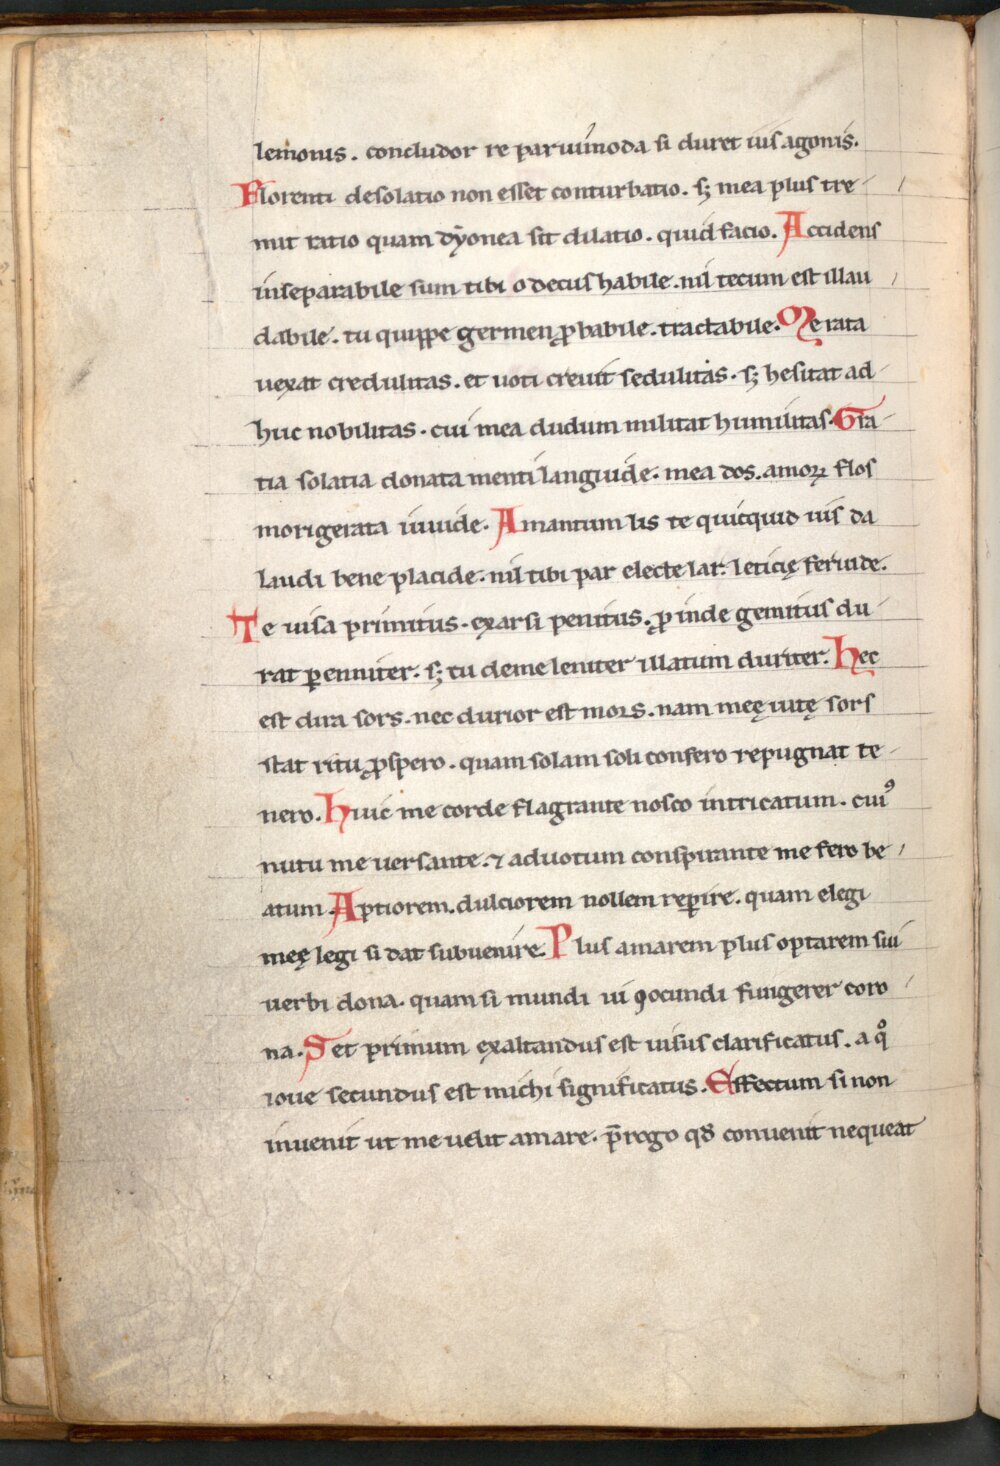 lemonis. concludor re paruimoda si duret uis agonis.
Florenti desolatio non esset conturbatio. sꝫ mea plus tre-
mit ratio quam dẏonea sit dilatio. quid facio. Accidens
inseparabile sum tibi o decus habile. nil tecum est illau-
dabile. tu quippe germen ꝓbabile. tractabile. Me rata
uexat credulitas. et uoti creuit sedulitas. sꝫ hesitat ad-
huc nobilitas. cui mea dudum militat humilitas. Gra-
tia solatia donata menti languide. mea dos. amoꝝ flos
morigerata uiuide. Amantum lis te quicquid uis da
laudi bene placide. nil tibi par electe lar. leticię feruide.
Te uisa primitus. exarsi penitus. ꝓinde gemitus du-
rat ꝑenniter. sꝫ tu deme leniter illatum duriter. Hec
est dira sors. nec durior est mors. nam meę uitę sors
stat ritu ꝓspero. quam solam soli confero repugnat te-
nero. Huic me corde flagrante nosco intricatum. cuiꝰ
nutu me uersante. ⁊ ad uotum conspirante me fero be-
atum. Aptiorem. dulciorem nollem reꝑire. quam elegi
meę legi si dat subuenire. Plus amarem plus optarem sui
uerbi dona. quam si mundi ui ꝯocundi fungerer coro-
na. Set primum exaltandus est uisus clarificatus. a qͦ
ioue secundus est michi significatus. Effectum si non
inuenit ut me uelit amare. p̄rogo qđ conuenit nequeat